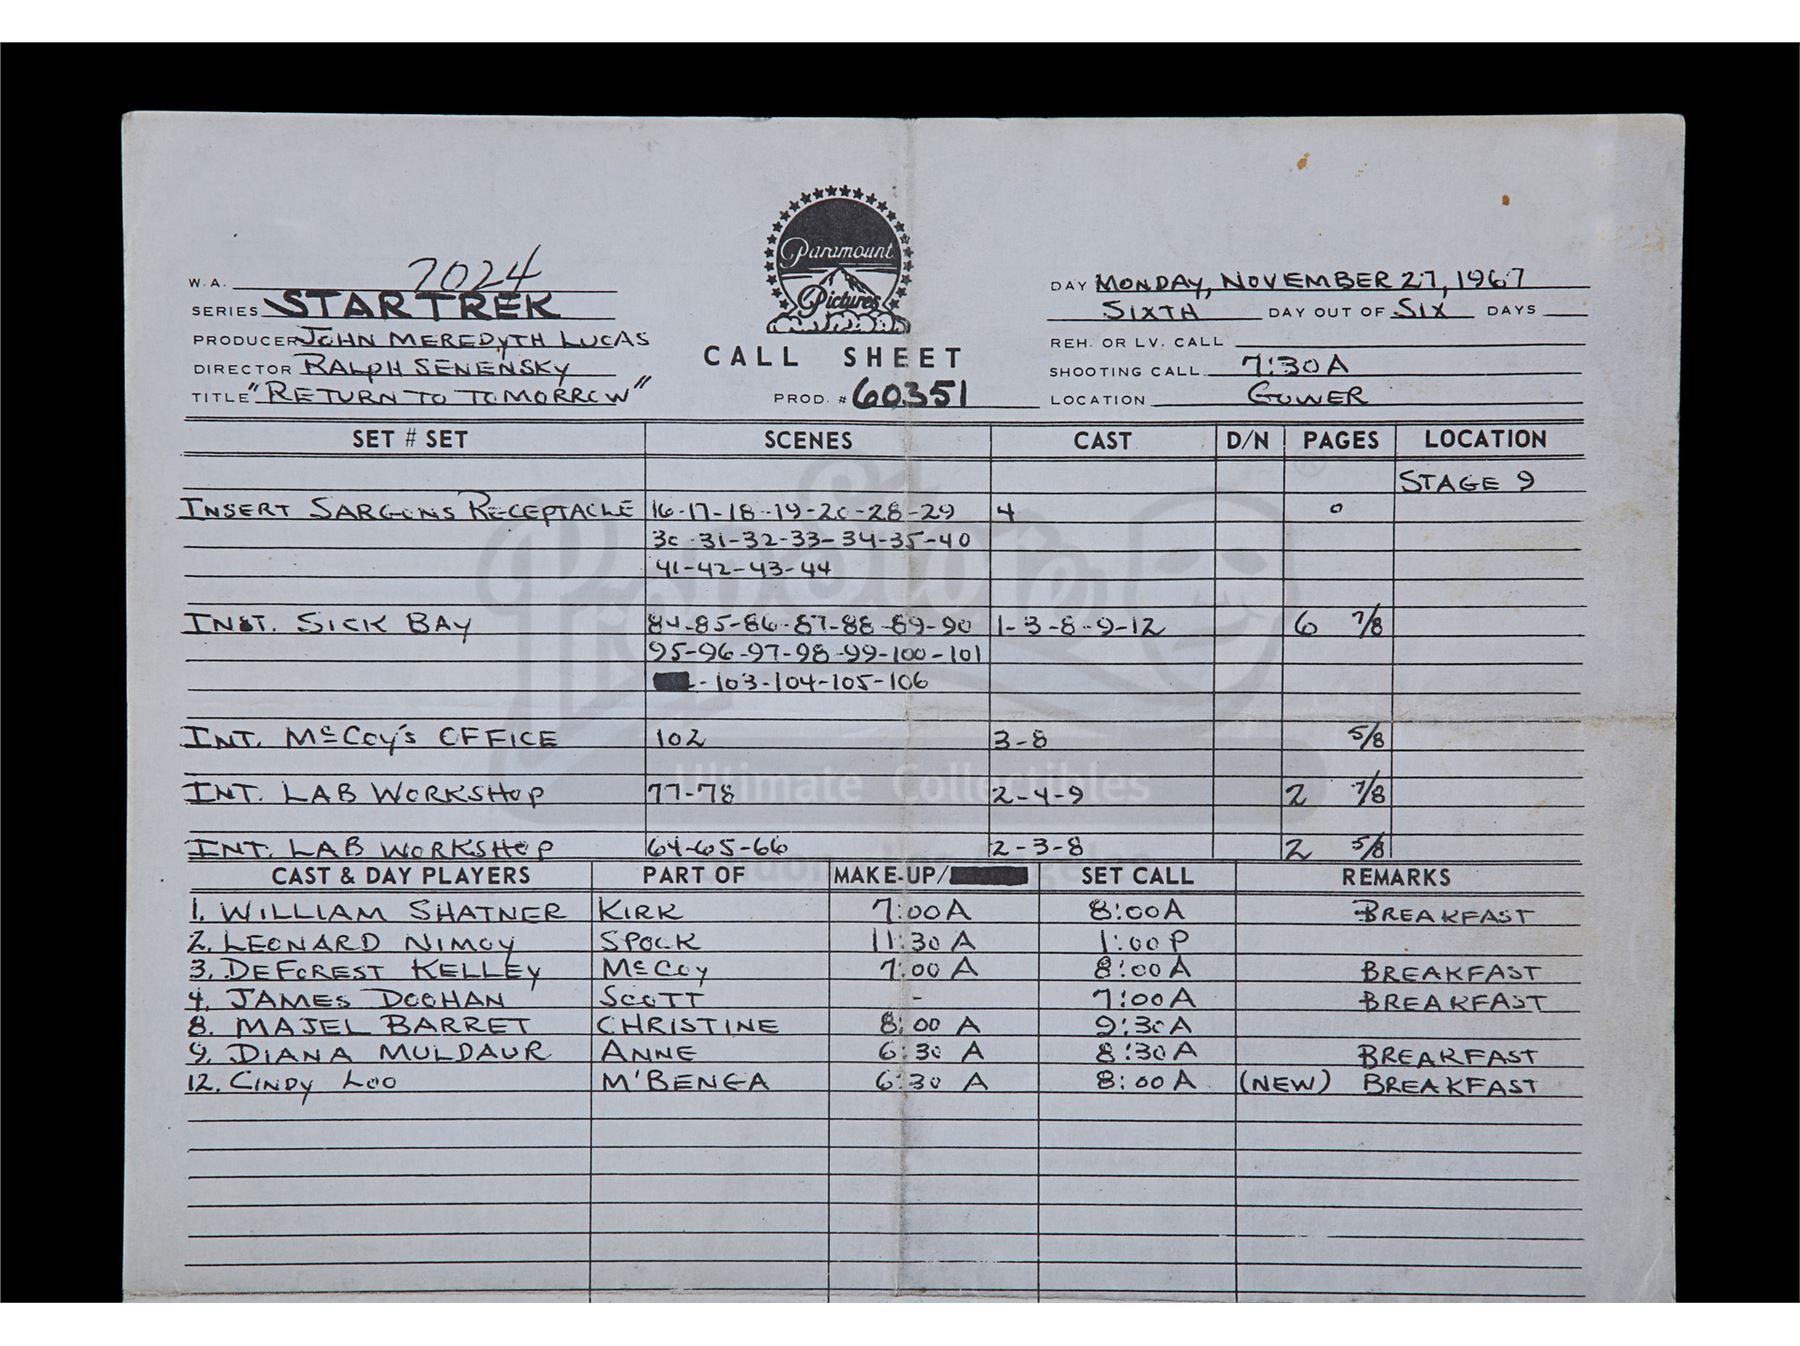 Paramount
Pictures
W.A. 7024
SERIES STAR TREK
PRODUCER JOHN MEREDYTH LUCAS
DIRECTOR RALPH SENENSKY
TITLE "RETURN TO TOMORROW"
CALL SHEET
PROD. # 60351
DAY MONDAY, NOVEMBER 27, 1967
SIXTH DAY OUT OF SIX DAYS
REH. OR LV. CALL
SHOOTING CALL 7:30A
LOCATION GOWER
SET # SET SCENES CAST D/N PAGES LOCATION
STAGE 9
INSERT SARGONS RECEPTACLE 16-17-18-19-20-28-29 4 0
30-31-32-33-34-35-40
41-42-43-44
INT. SICK BAY 84-85-86-87-88-89-90 1-3-8-9-12 6 7/8
95-96-97-98-99-100-101
-103-104-105-106
INT. McCOY'S OFFICE 102 3-8 5/8
INT. LAB WORKSHOP 77-78 2-4-9 2 7/8
INT. LAB WORKSHOP 64-65-66 2-3-8 2 5/8
CAST & DAY PLAYERS PART OF MAKE-UP/ SET CALL REMARKS
1. WILLIAM SHATNER KIRK 7:00A 8:00A BREAKFAST
2. LEONARD NIMOY SPOCK 11:30A 1:00P
3. DEFOREST KELLEY McCOY 7:00A 8:00A BREAKFAST
4. JAMES DOOHAN SCOTT - 7:00A BREAKFAST
8. MAJEL BARRET CHRISTINE 8:00 A 9:30A
9. DIANA MULDAUR ANNE 6:30 A 8:30A BREAKFAST
12. CINDY LOO M'BENGA 6:30 A 8:00A (NEW) BREAKFAST
Propstore
Ultimate Collectibles